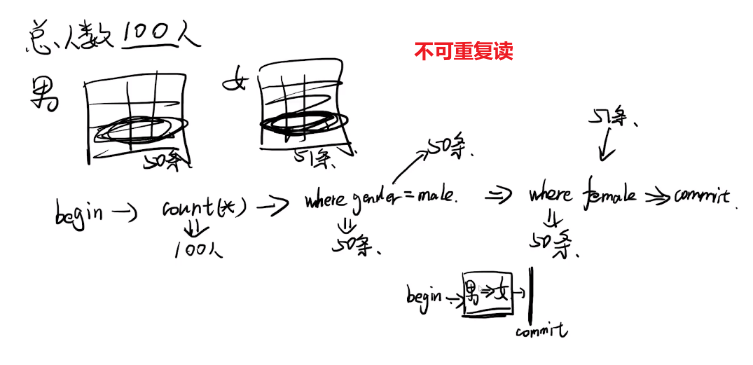 总人数100人
不可重复读
男
女
50条
51条
50条.
51条.
begin → count(*) → where gender = male. ⇒ where female ⇒ commit.
100人
50条.
50条.
begin → 男⇒女 →
commit